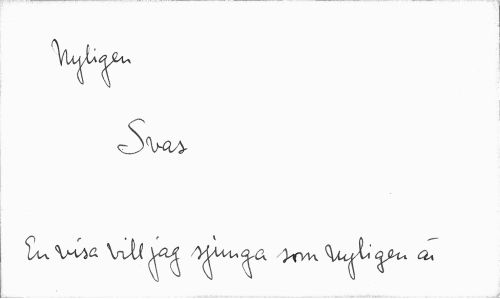 Nyligen
Svas
En visa vill jag sjunga som nyligen är